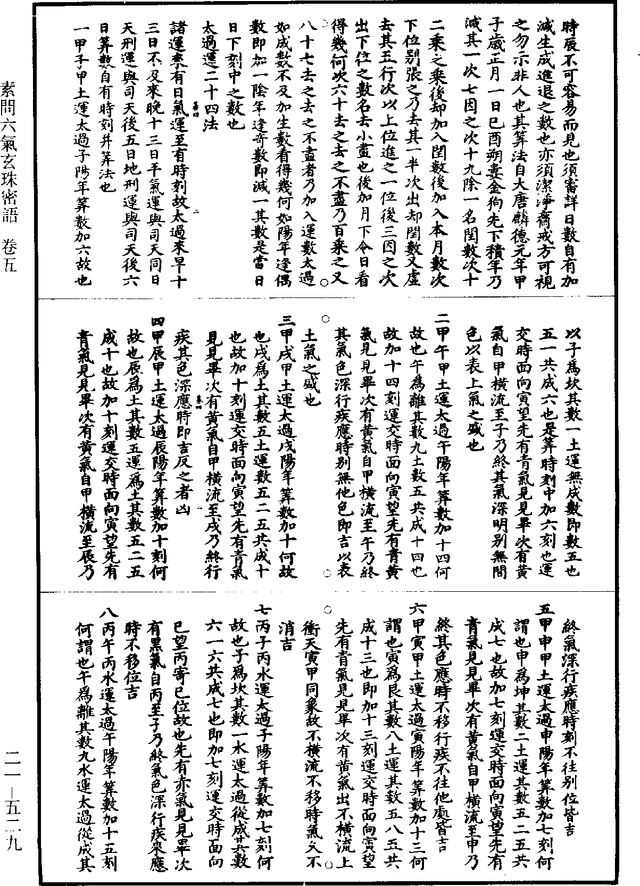 素問六氣玄珠密語 卷五
二一—五二九
時辰不可容易而見也須審詳日數自有加
減生成進退之數也亦須潔淨齋戒方可視
之勿示非人也其算法自大唐麟德元年甲
子歲正月一日己酉朔婁金狗先下積年乃
減其一次七因之次十九除一名閏數次十
二乘之乘後却加入閏數後加入本月數次
下位別張之乃去其一半次出却閏數又虛
去其五行次以上位進之一位後三因之次
出下位之數名去小盡也後加月下令日看
得幾何次六十去之去之不盡乃百乘之又
八十七去之去之不盡者乃加入運數太過
如成數不及加生數看得幾何如陽年逢偶
數即加一陰年逢奇數即減一其數是當日
日下刻中之數也
太過運二十四法
諸運泰有日氣運至有時刻故太過來早十
三日不及來晚十三日平氣運與司天同日
天刑運與司天後五日地刑運與司天後六
日算數自有時刻并算法也
一甲子甲土運太過子陽年算數加六故也
以子為坎其數一土運無成數即數五也
五一共成六也是算時刻中加六刻也運
交時面向寅望先有青氣見見畢次有黃
氣自甲橫流至子乃終其氣深明別無間
色以表上氣之盛也
二甲午甲土運太過午陽年算數加十四何
故也午為離其數九土數五共成十四也
故加十四刻運交時面向寅望先有青黃
氣見見畢次有黃氣自甲橫流至午乃終
其氣色深行疾應時別無他色即吉以表
土氣之盛也
三甲戌甲土運太過戌陽年算數加十何故
也戌為土其數五土運數五二五共成十
也故加十刻運交時面向寅望先有青氣
見見畢次有黃氣自甲橫流至戌乃終行
疾其色深應時即吉反之者凶
四甲辰甲土運太過辰陽年算數加十刻何
故也辰為土其數五運為土其數五二五
成十也故加十刻運交時面向寅望先有
青氣見見畢次有黃氣自甲橫流至辰乃
終氣深行疾應時刻不往別位皆吉
五甲申甲土運太過申陽年算數加七刻何
謂也申為坤其數二土運其數五二五共
成七也故加七刻運交時面向寅望先有
青氣見見畢次有黃氣自甲橫流至申乃
終其色應時不移行疾不往他處皆吉
六甲寅甲土運太過寅陽年算數加十三何
謂也寅為艮其數八土運其數五八五共
成十三也即加十三刻運交時面向寅望
先有青氣見見畢次有黃氣出不橫流上
衝天寅甲同象故不橫流不移時氣又不
消吉
七丙子丙水運太過子陽年算數加七刻何
故也子為坎其數一水運太過從成其數
六一六共成七也即加七刻運交時面向
巳望丙寄巳位故也先有赤氣見見畢次
有黑氣自丙至子乃終氣色深行疾來應
時不移位吉
八丙午丙水運太過午陽年算數加十五刻
何謂也午為離其數九水運太過從成其